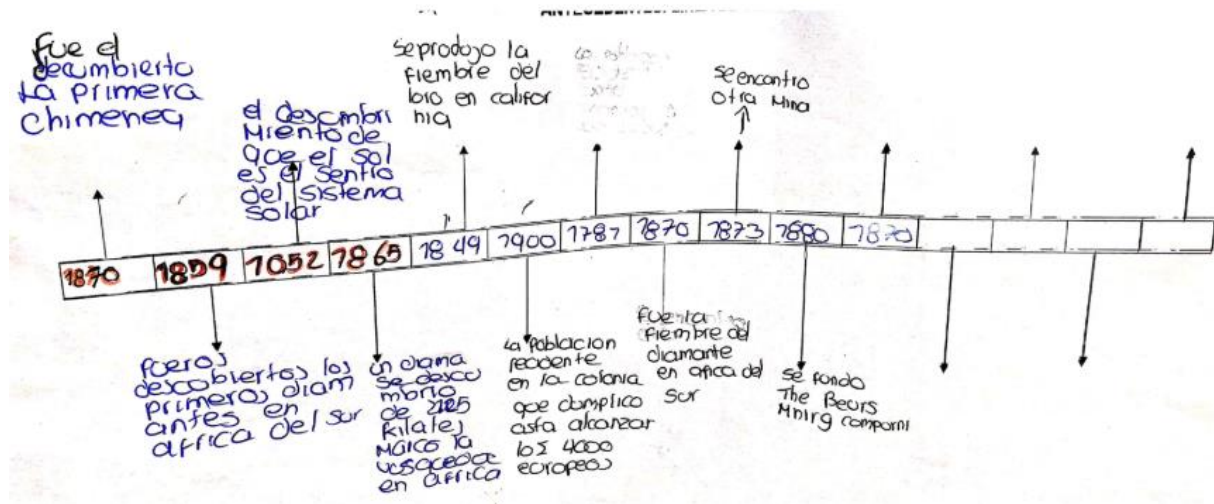 fue el
decumbierto
La primera
chimenea
el descambri
Miento de
que el sol
es el sentro
del sistema
solar
se produjo la
fiembre del
loro en califor
nia
se encontro
otra mina
1870
1859
1052
1865
1849
1900
1787
1870
1873
1880
1870
fueros
descobiertos los
primeros diam
antes en
africa del sur
un diama
se desco
mbrio
de
kilates
marco la
en africa
La Poblacion
recidente
en la colonia
que dumplico
asta alcanzar
los 4000
europeos
fue la
fiembre del
diamante
en africa del
sur
se fondo
The Beurs
Mnirg comparni